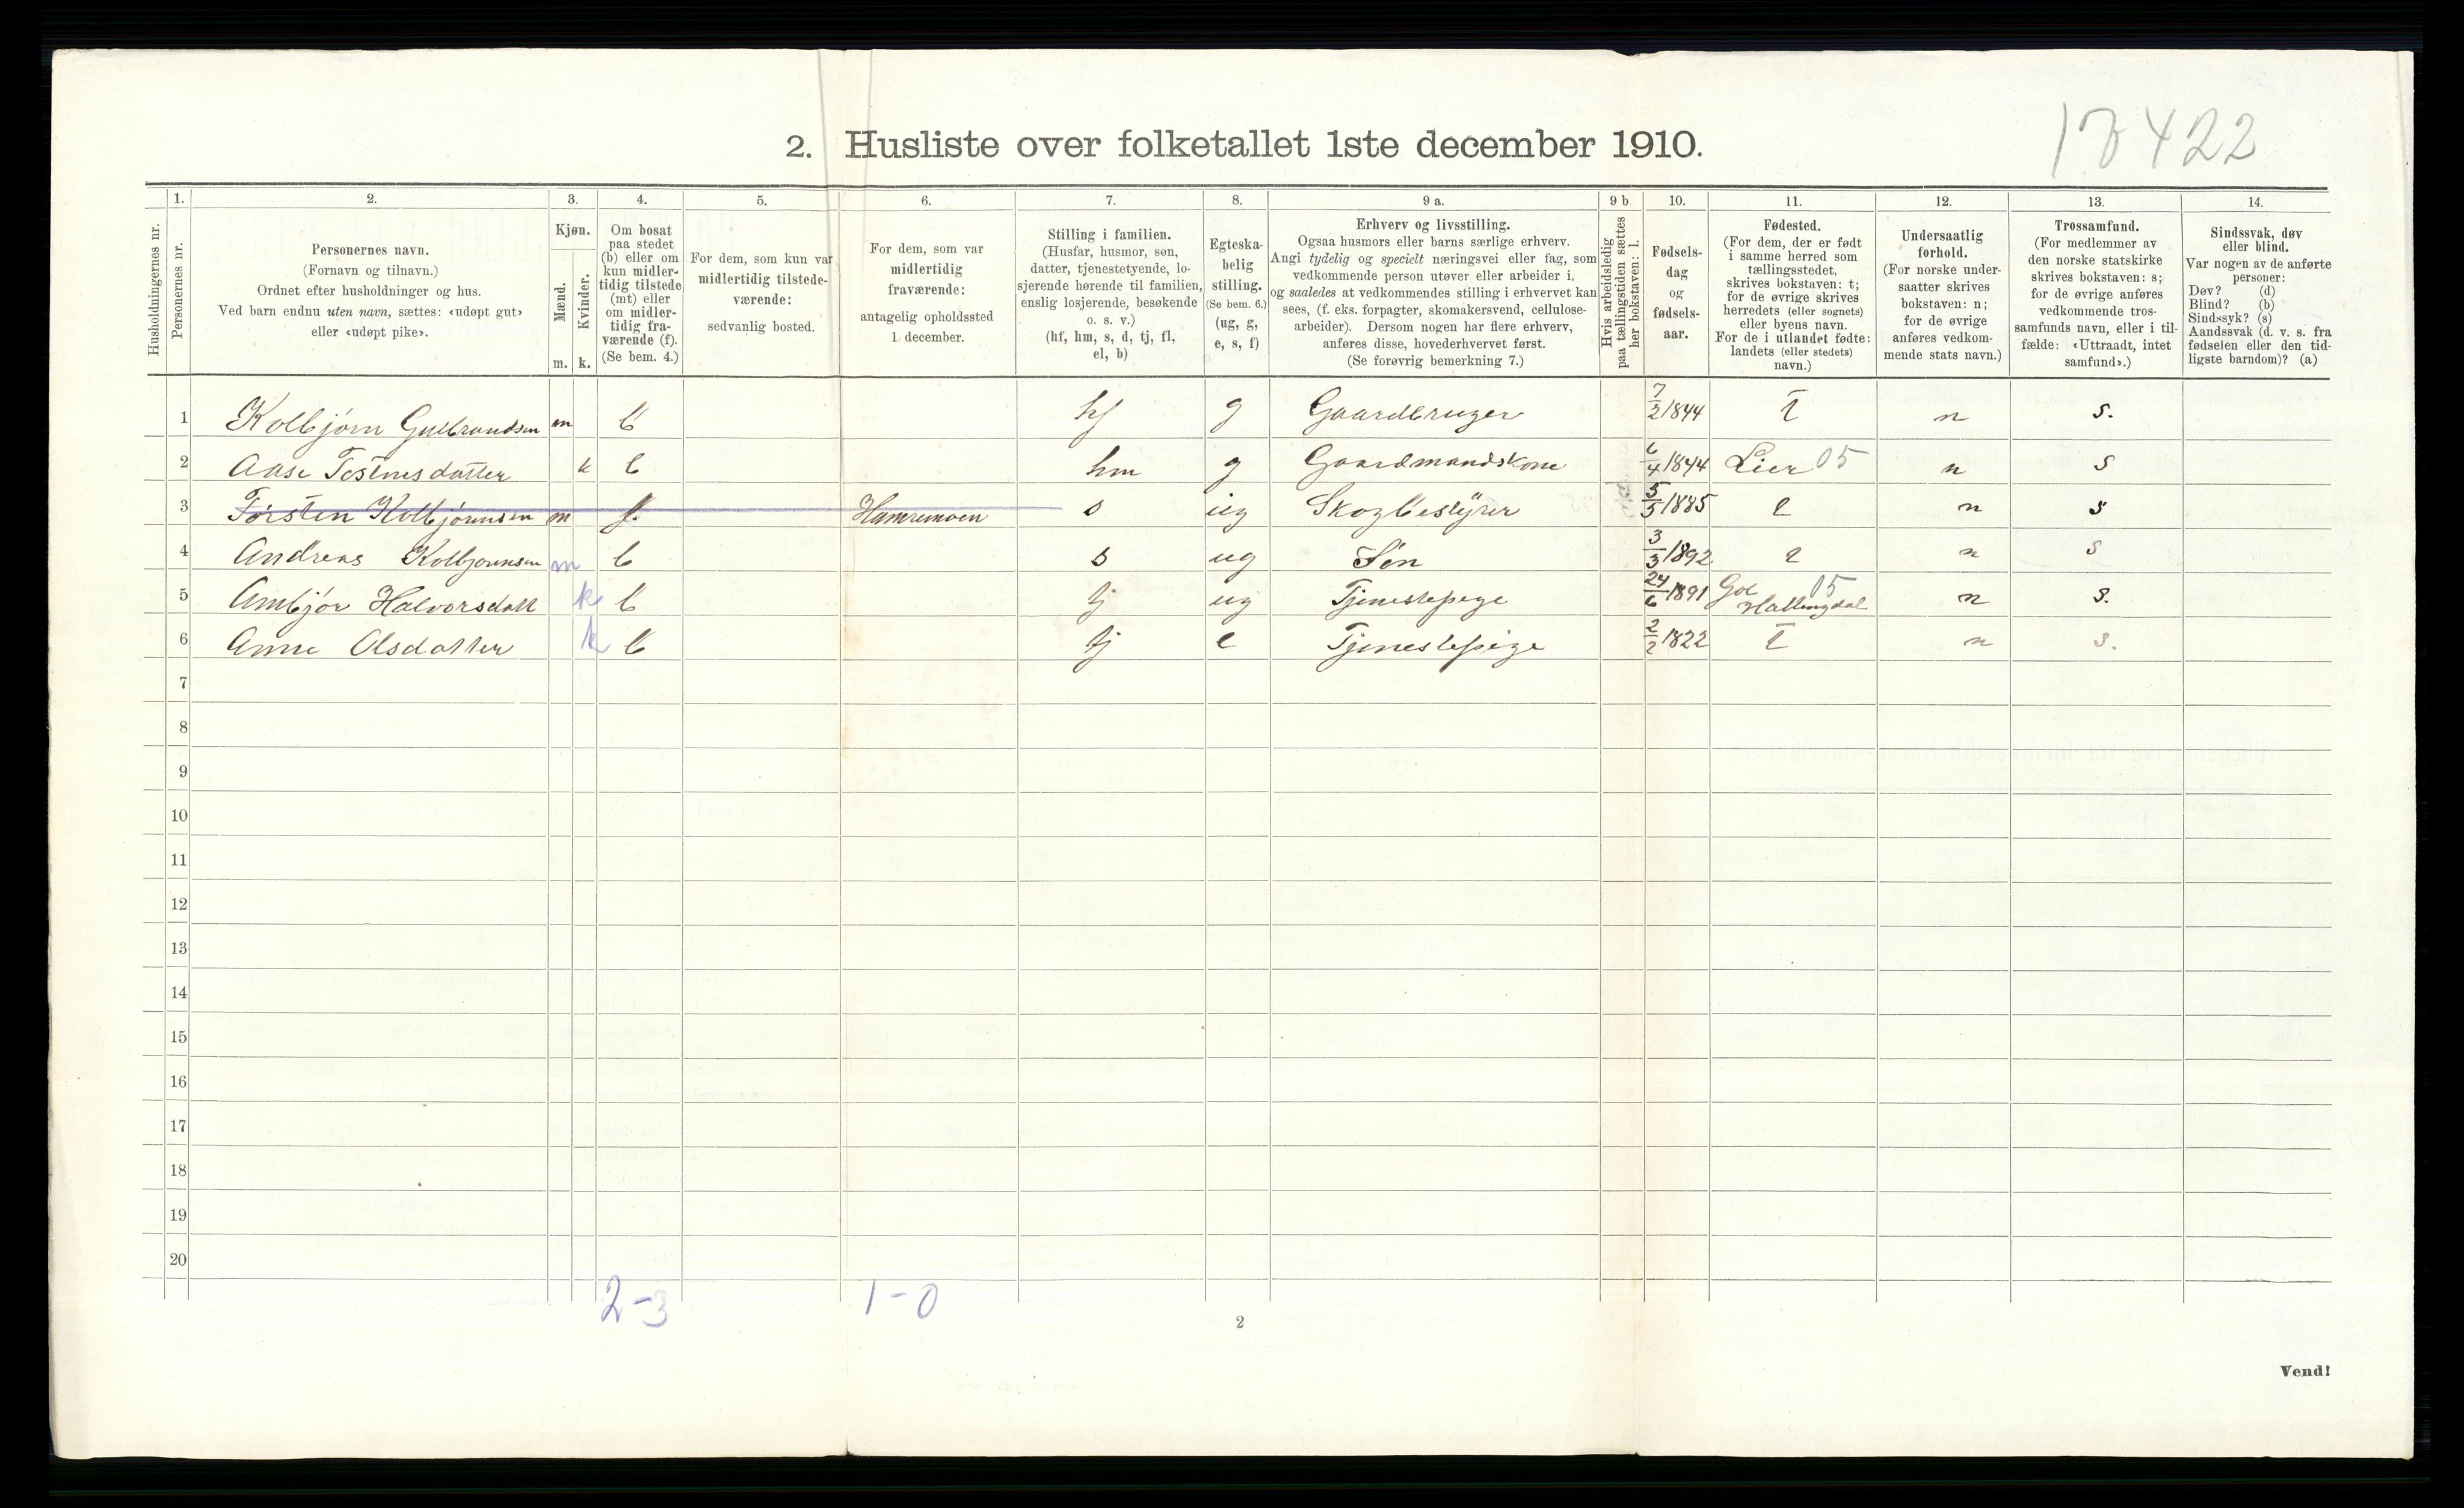 17422
2. Husliste over folketallet 1ste december 1910.
Husholdningernes nr.
1.
Personernes nr.
2.
Personernes navn.
(Fornavn og tilnavn.)
Ordnet efter husholdninger og hus.
Ved barn endnu uten navn, sættes: «udøpt gut»
eller «udøpt pike».
3.
Kjøn.
Mænd.
Kvinder.
m. k.
4.
Om bosat
paa stedet
(b) eller om
kun midler-
tidig tilstede
(mt) eller
om midler-
tidig fra-
værende (f).
(Se bem. 4.)
5.
For dem, som kun var
midlertidig tilstede-
værende:
sedvanlig bosted.
6.
For dem, som var
midlertidig
fraværende:
antagelig opholdssted
1 december.
7.
Stilling i familien.
(Husfar, husmor, søn,
datter, tjenestetyende, lo-
sjerende hørende til familien,
enslig losjerende, besøkende
o. s. v.)
(hf, hm, s, d, tj, fl,
el, b)
8.
Egteska-
belig
stilling.
(Se bem. 6.)
(ug, g,
e, s, f)
9 a.
Erhverv og livsstilling.
Ogsaa husmors eller barns særlige erhverv.
Angi tydelig og specielt næringsvei eller fag, som
vedkommende person utøver eller arbeider i,
og saaledes at vedkommendes stilling i erhvervet kan
sees, (f. eks. forpagter, skomakersvend, cellulose-
arbeider). Dersom nogen har flere erhverv,
anføres disse, hovederhvervet først.
(Se forøvrig bemerkning 7.)
9 b
Hvis arbeidsledig
paa tællingstiden sættes
her bokstaven: l.
10.
Fødsels-
dag
og
fødsels-
aar.
11.
Fødested.
(For dem, der er født
i samme herred som
tællingsstedet,
skrives bokstaven: t;
for de øvrige skrives
herredets (eller sognets)
eller byens navn.
For de i utlandet fødte:
landets (eller stedets)
navn.)
12.
Undersaatlig
forhold.
(For norske under-
saatter skrives
bokstaven: n;
for de øvrige
anføres vedkom-
mende stats navn.)
13.
Trossamfund.
(For medlemmer av
den norske statskirke
skrives bokstaven: s;
for de øvrige anføres
vedkommende tros-
samfunds navn, eller i til-
fælde: «Uttraadt, intet
samfund».)
14.
Sindssvak, døv
eller blind.
Var nogen av de anførte
personer:
Døv? (d)
Blind? (b)
Sindssyk? (s)
Aandssvak (d. v. s. fra
fødselen eller den tid-
ligste barndom)? (a)
1 Kolbjørn Gulbrandsen m b hf g Gaardbruger 7/2 1844 t n s.
2 Aase Tostensdatter k b hm g Gaardmandskone 6/4 1844 Lier 05 n s
3 Torsten Kolbjørnsen m f. Hamremoen s ug Skogbestyrer 5/5 1885 t n s
4 Andreas Kolbjørnsen m b s ug Søn 3/3 1892 t n s
5 Ambjør Halvorsdatt k b tj ug Tjenestepige 24/6 1891 Gol Hallingdal 05 n s.
6 Anne Olsdatter k b tj e Tjenestepige 2/2 1822 t n s.
7
8
9
10
11
12
13
14
15
16
17
18
19
20
2-3 1-0
2
Vend!